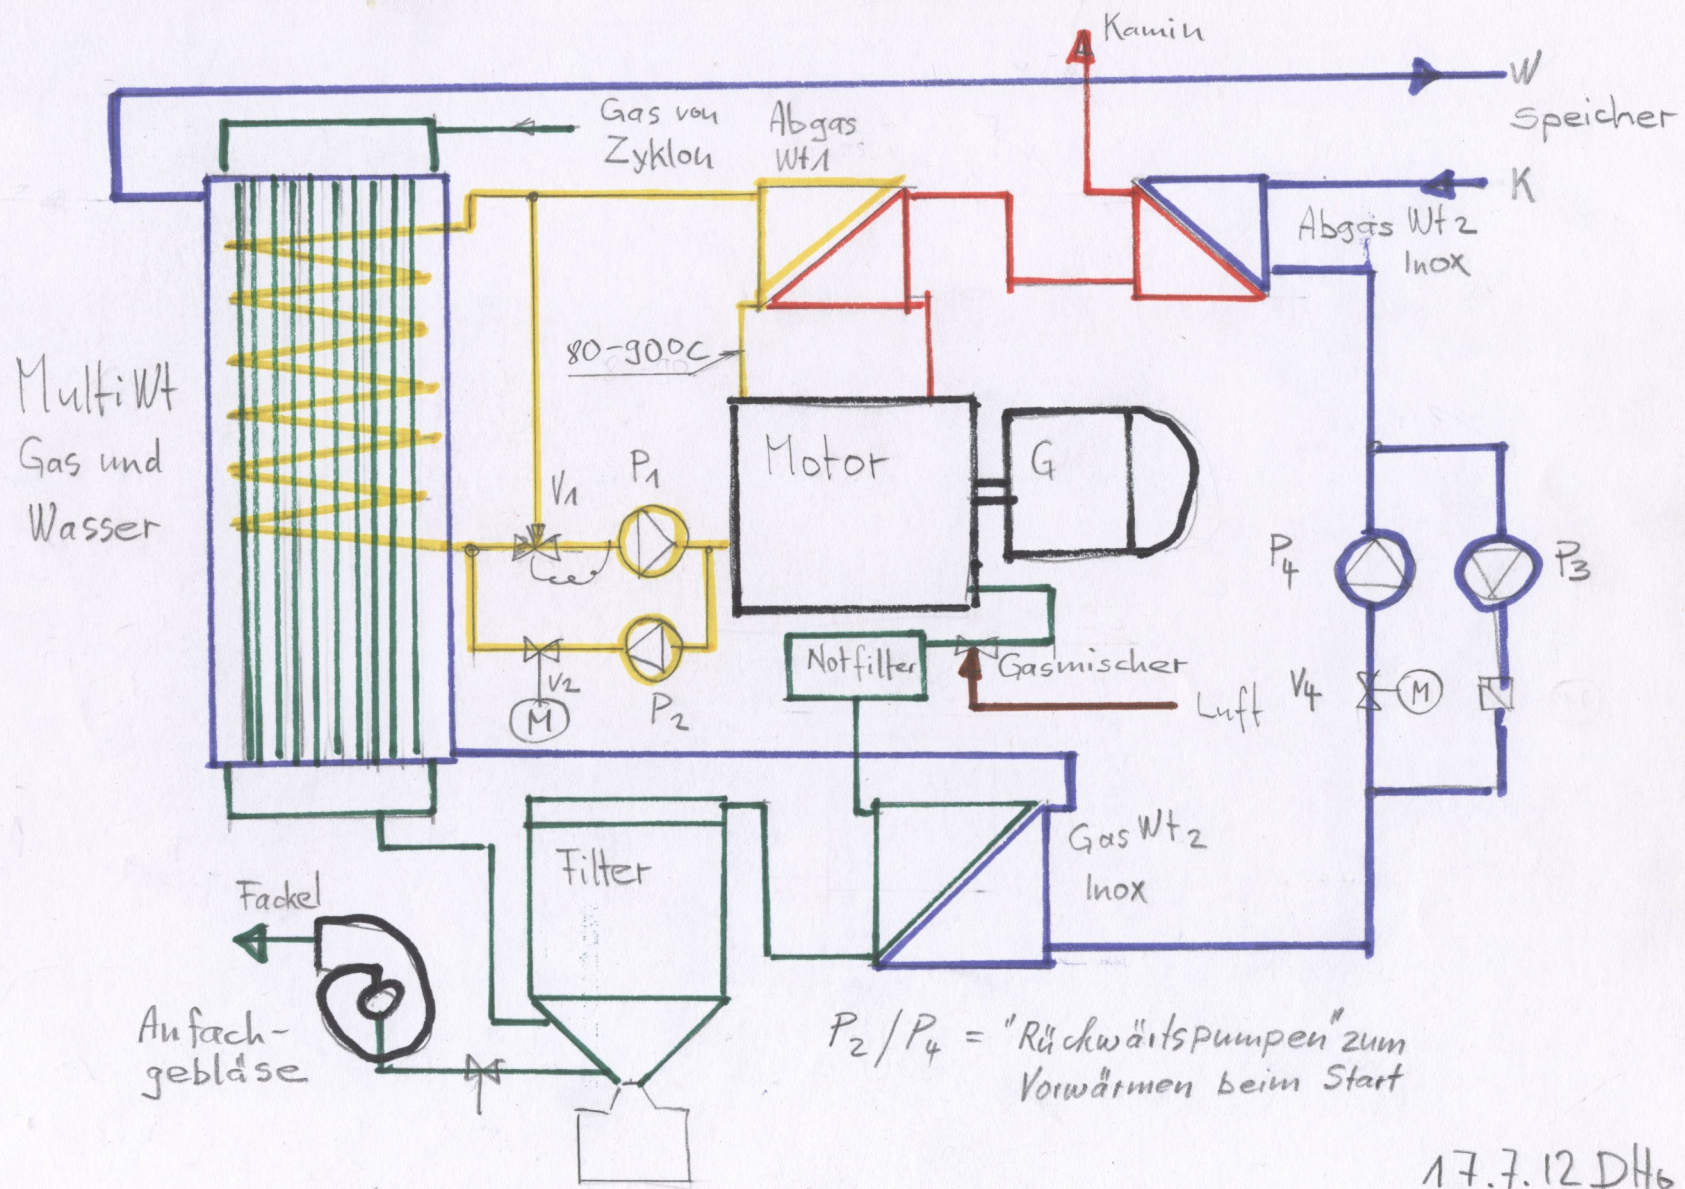 Kamin
W
Speicher
Gas von
Zyklon
Abgas
Wt1
K
Abgas Wt2
Inox
80-90°C
Multi Wt
Gas und
Wasser
Motor
G
V1
P1
P4
P3
Notfilter
Gasmischer
V2
M
P2
Luft
V4
M
Filter
Gas Wt2
Inox
Fackel
Anfach-
gebläse
P2/P4 = "Rückwärtspumpen" zum
Vorwärmen beim Start
17.7.12